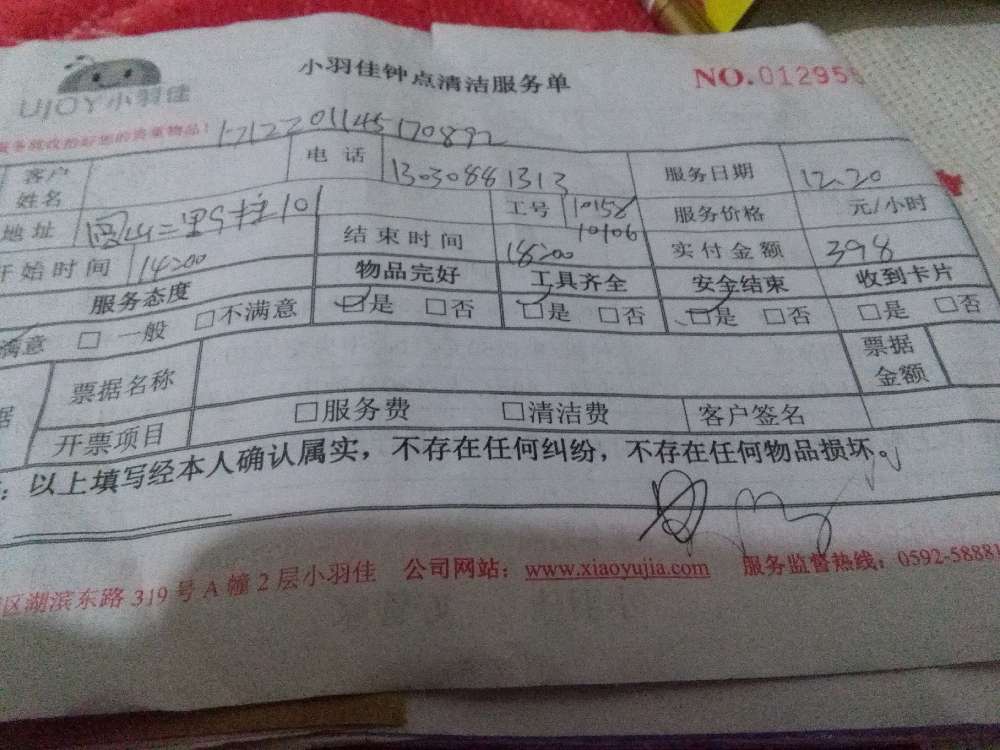 UJOY 小羽佳
小羽佳钟点清洁服务单
NO.01295
服务就收拾好您的贵重物品!
1712201145170892
客户姓名 电话 13030881313 服务日期 12.20
地址 工号 10158 10106 服务价格 元/小时
开始时间 14:00 结束时间 18:00 实付金额 398
服务态度 物品完好 工具齐全 安全结束 收到卡片
满意 □ 一般 □不满意 □是 □否 □是 □否 □是 □否 □是 □否
据 票据名称 票据金额
开票项目 □服务费 □清洁费 客户签名
:以上填写经本人确认属实，不存在任何纠纷，不存在任何物品损坏。
区湖滨东路319号A幢2层小羽佳 公司网站：www.xiaoyujia.com 服务监督热线：0592-58881